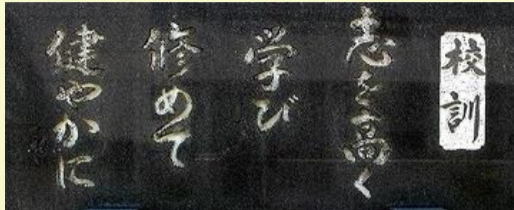 校訓
志を高く
学び
修めて
健やかに